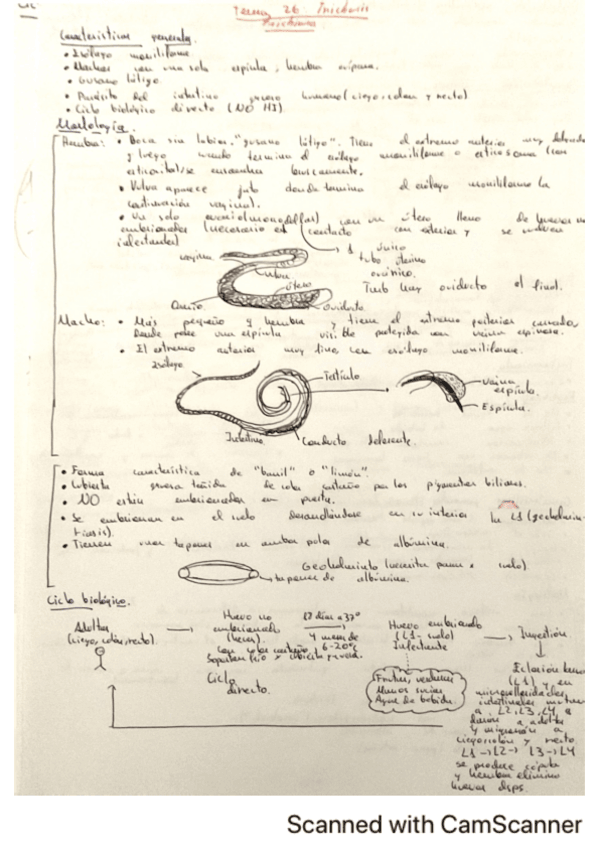 Tema 26 Tricuriasis
Características generales.
• Esófago moniliforme.
• Machos con una sola espícula, hembra ovípara.
• Gusano látigo.
• Parásito del intestino grueso humano (ciego, colon y recto)
• Ciclo biológico directo (NO HI)
Morfología.
Hembra: • Boca sin labios. "gusano látigo". Tiene el extremo anterior muy delgado
y luego cuando termina el esófago moniliforme o esticosoma (con
se ensancha bruscamente.
• Vulva aparece justo donde termina el esófago moniliforme (a
continuación vagina).
• Un solo con un útero lleno de huevos no
embrionados (necesario el contacto con exterior y se vuelven
infectantes)
→ 1 único
tubo útero
ovárico.
Tmb hay oviducto al final.
vagina
vulva
útero
Ovario
Oviducto
Macho: • Más pequeño q hembra y tiene el extremo posterior curvado,
donde posee una espícula visible protegida con vaina espinosa.
• El extremo anterior muy fino, con esófago moniliforme.
Esófago
Testículo
Vaina espícula.
Espícula.
Intestino
Conducto deferente.
• Forma característica de "barril" o "limón".
• Cubierta gruesa teñida de color castaño por los pigmentos biliares.
• NO están embrionados en puesta.
• Se embrionan en el suelo desarrollándose en su interior la L1 (geohelmin-
tiasis).
• Tienen unos tapones en ambos polos de albúmina.
Geohelminto (necesita pasar x suelo).
→ tapones de albúmina.
Ciclo biológico.
Adultos
(ciego, colon, recto).
Huevo no
embrionado
(heces).
con color castaño
Soportan frío y cubierta gruesa.
17 días a 37º
4 meses de
6-20ºC
Huevo embrionado
(L1 - suelo)
Infectante
→ Ingestión
Ciclo
directo.
Frutas, verduras
Manos sucias
Agua de bebida.
Eclosión
(L1) y en
microvellosidades
intestinales mudan
a L2, L3, L4, a
adulto
y migración a
ciego, colon y recto.
L1→L2→L3→L4
se produce cópula
y hembra elimina
huevos dsps.
Scanned with CamScanner